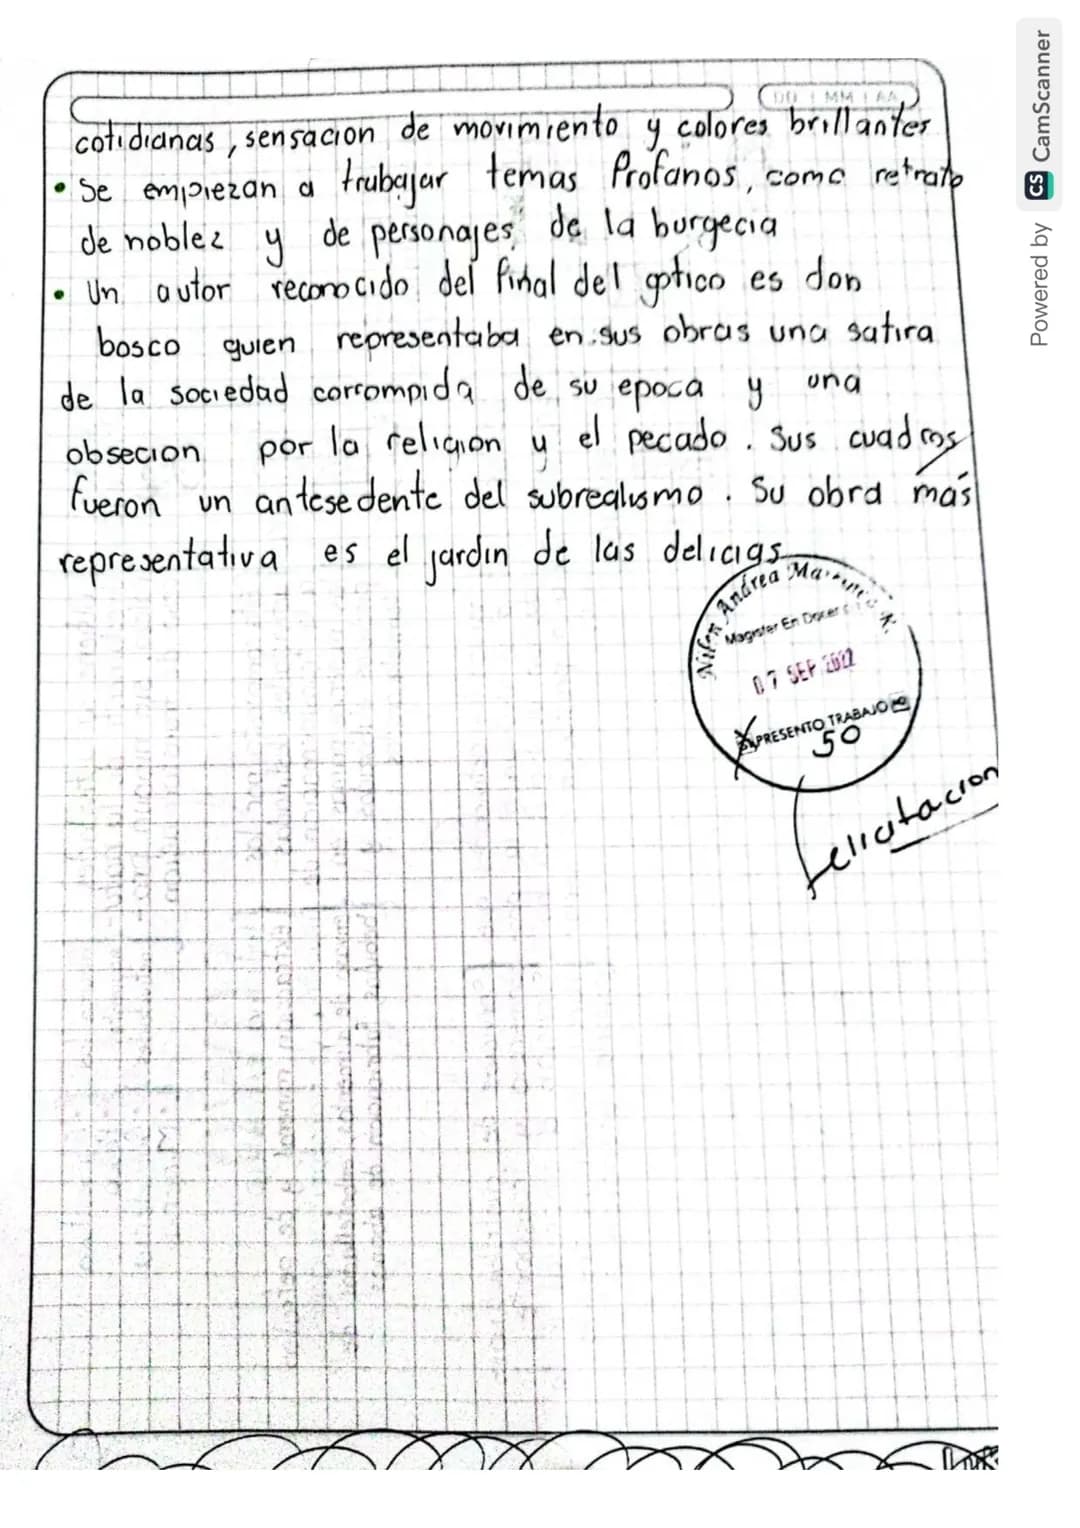 DD MM AA
cotidianas, sensacion de movimiento y colores brillantes
• Se empiezan a trabajar temas Profanos, como retrato
de noblez y de personajes de la burgecia
• Un autor reconocido del final del gotico es don
bosco quien representaba en sus obras una satira
de la sociedad corrompida de su epoca y una
obsecion por la religion y el pecado. Sus cuadros
fueron un antesedente del subrealismo. Su obra más
representativa es el jardin de las delicias
Andrea
Magister En
07 SEP 2022
PRESENTO TRABAJO
50
Felicitacion
Powered by CS CamScanner